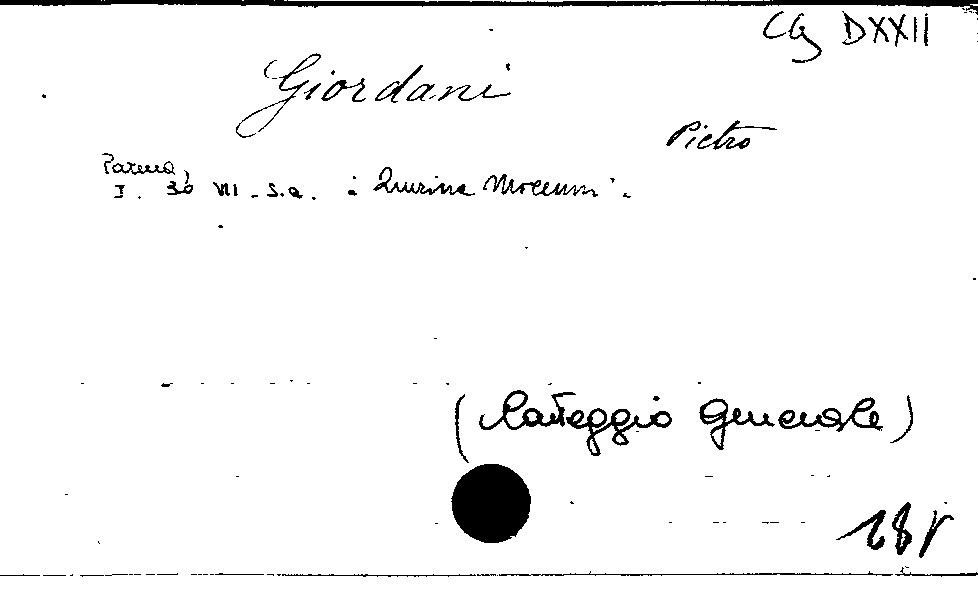 CG DXXII
Giordani
Pietro
Parma,
I. 30 VII - S.a. a Quirina Mocenni.
(Carteggio Generale)